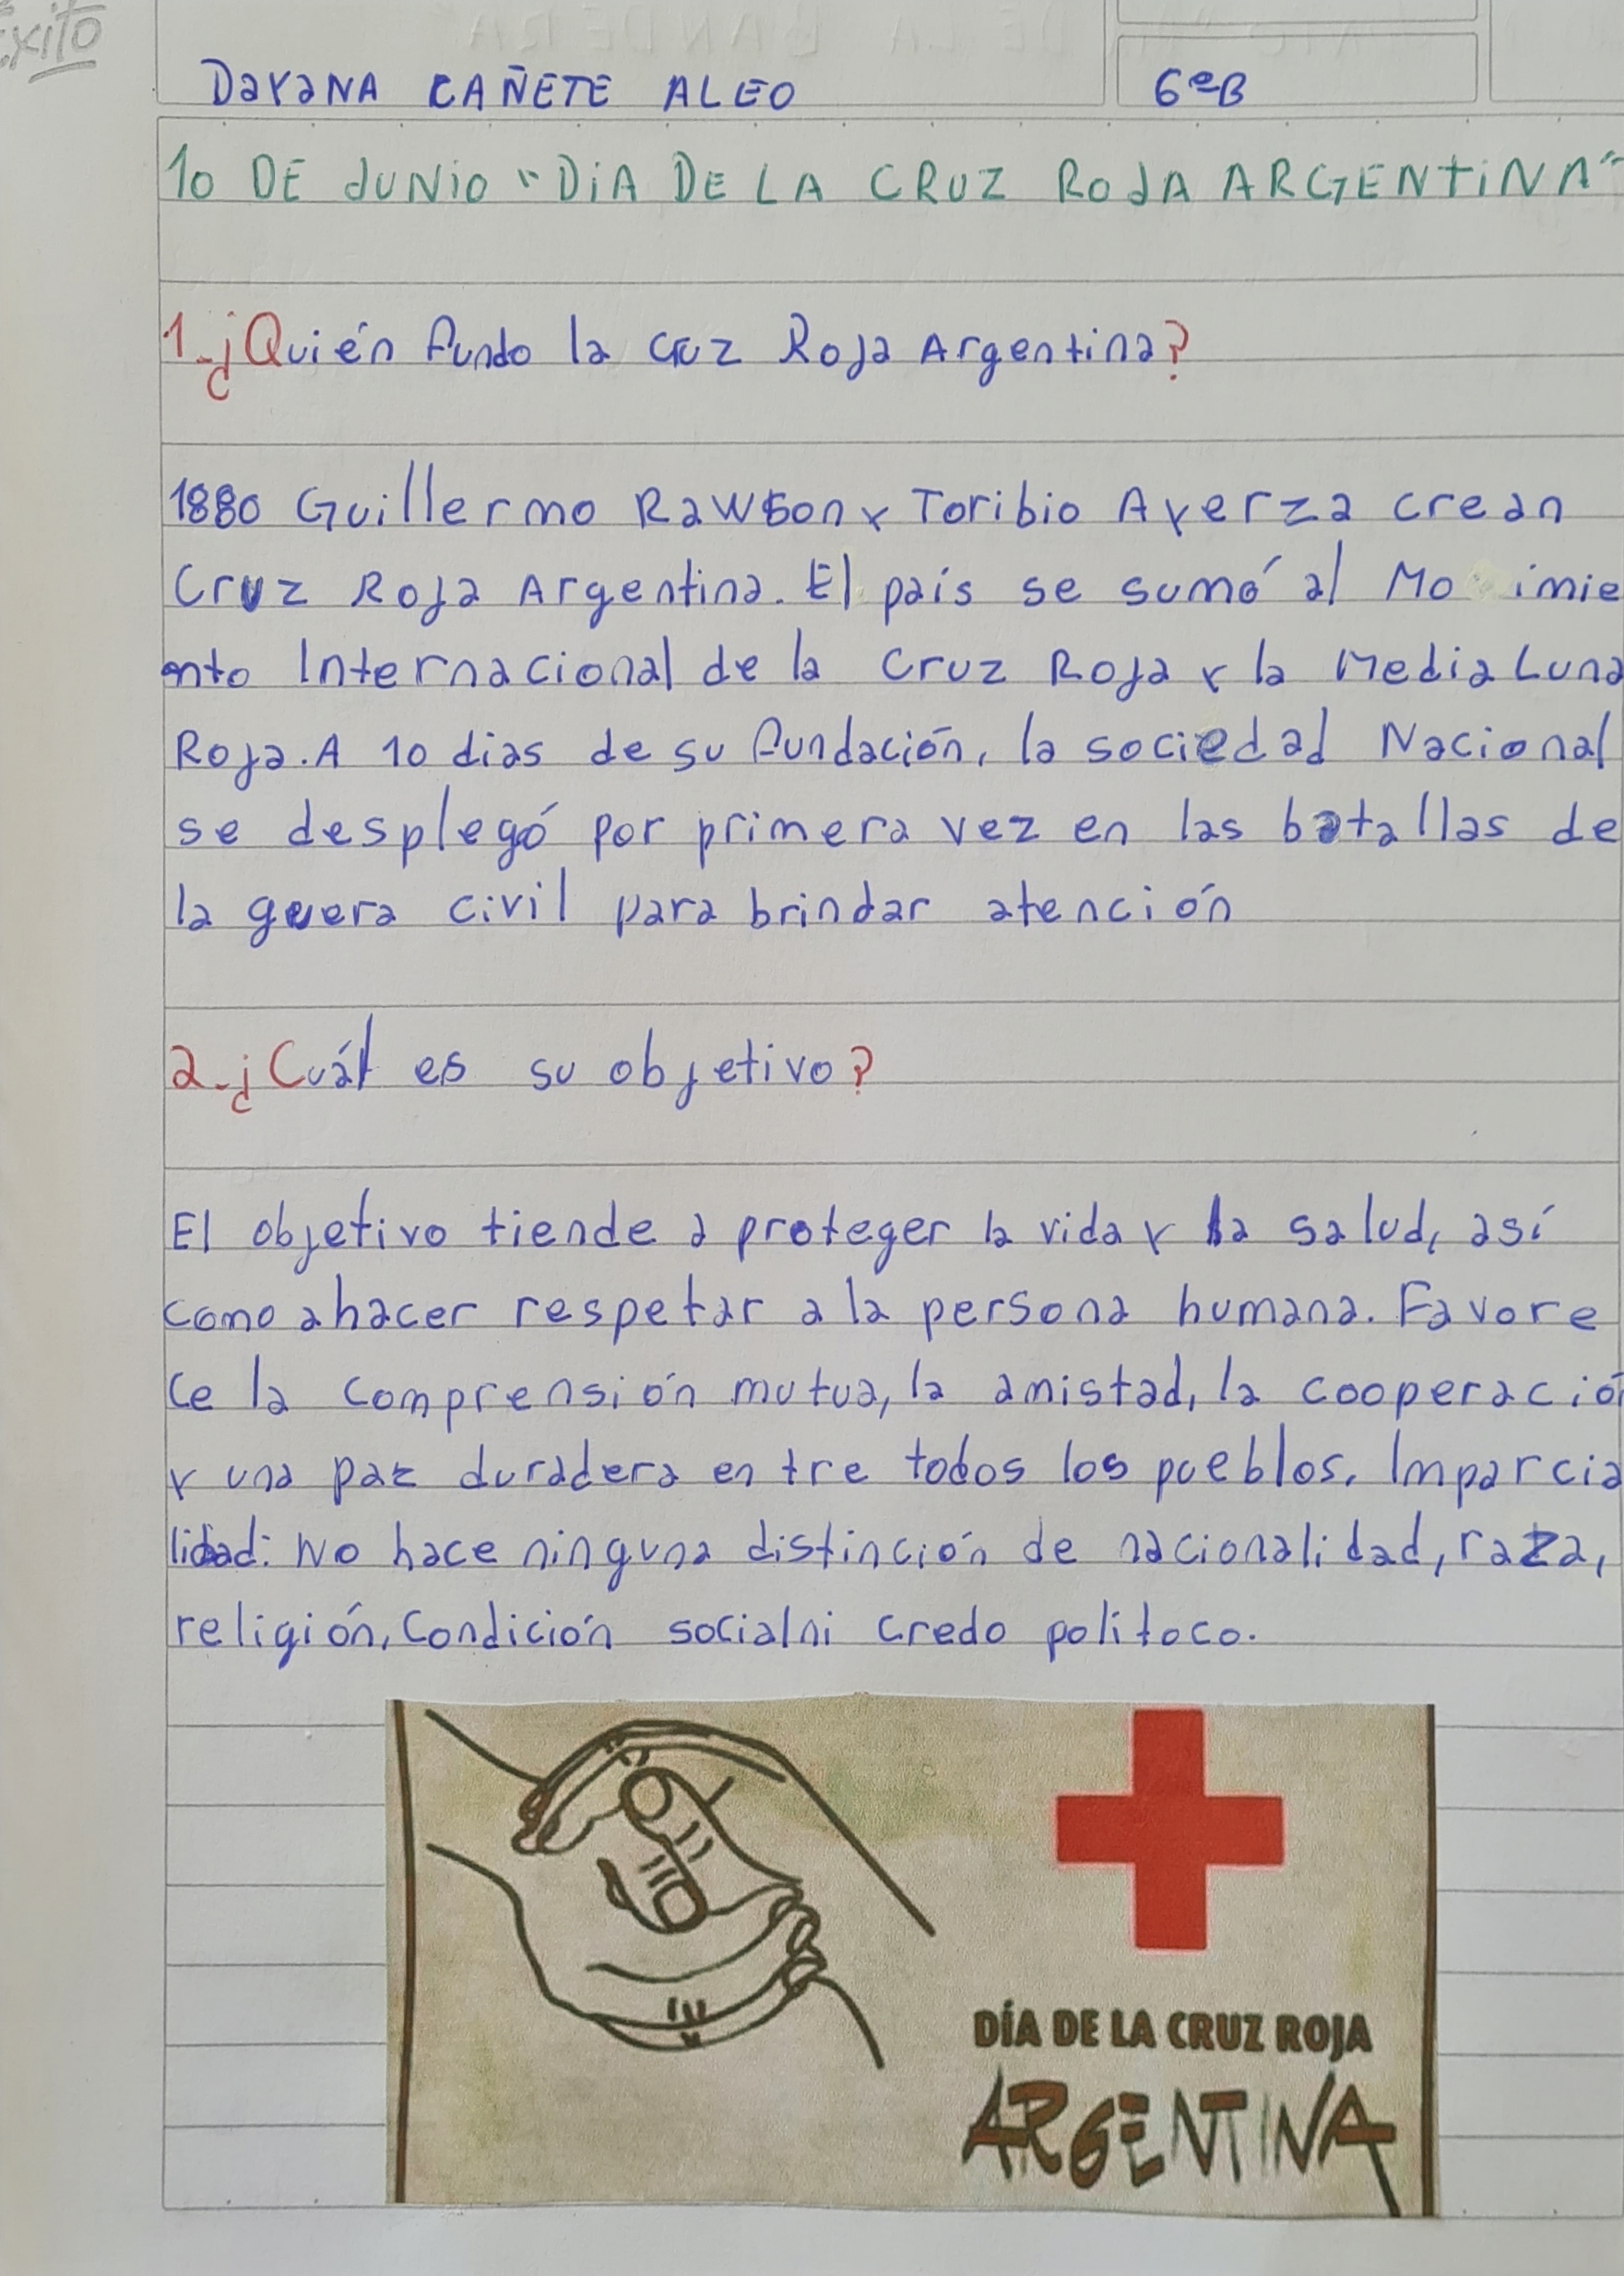 Éxito
DAYANA CAÑETE ALEO 6ºB
10 DE JUNIO "DIA DE LA CRUZ ROJA ARGENTINA"
1-¿Quién fundo la cruz Roja Argentina?
1880 Guillermo Rawson y Toribio Ayerza crean
Cruz Roja Argentina. El país se sumó al Mo imie
nto Internacional de la Cruz Roja y la Media Luna
Roja. A 10 dias de su fundación, la sociedad Nacional
se desplegó por primera vez en las batallas de
la guera civil para brindar atención
2-¿Cuál es su objetivo?
El objetivo tiende a proteger la vida y la salud, así
como a hacer respetar a la persona humana. Favore
ce la comprensión mutua, la amistad, la cooperació
y una paz duradera entre todos los pueblos. Imparcia
lidad: No hace ninguna distinción de nacionalidad, raza,
religión, Condición social ni credo politoco.
DÍA DE LA CRUZ ROJA
ARGENTINA